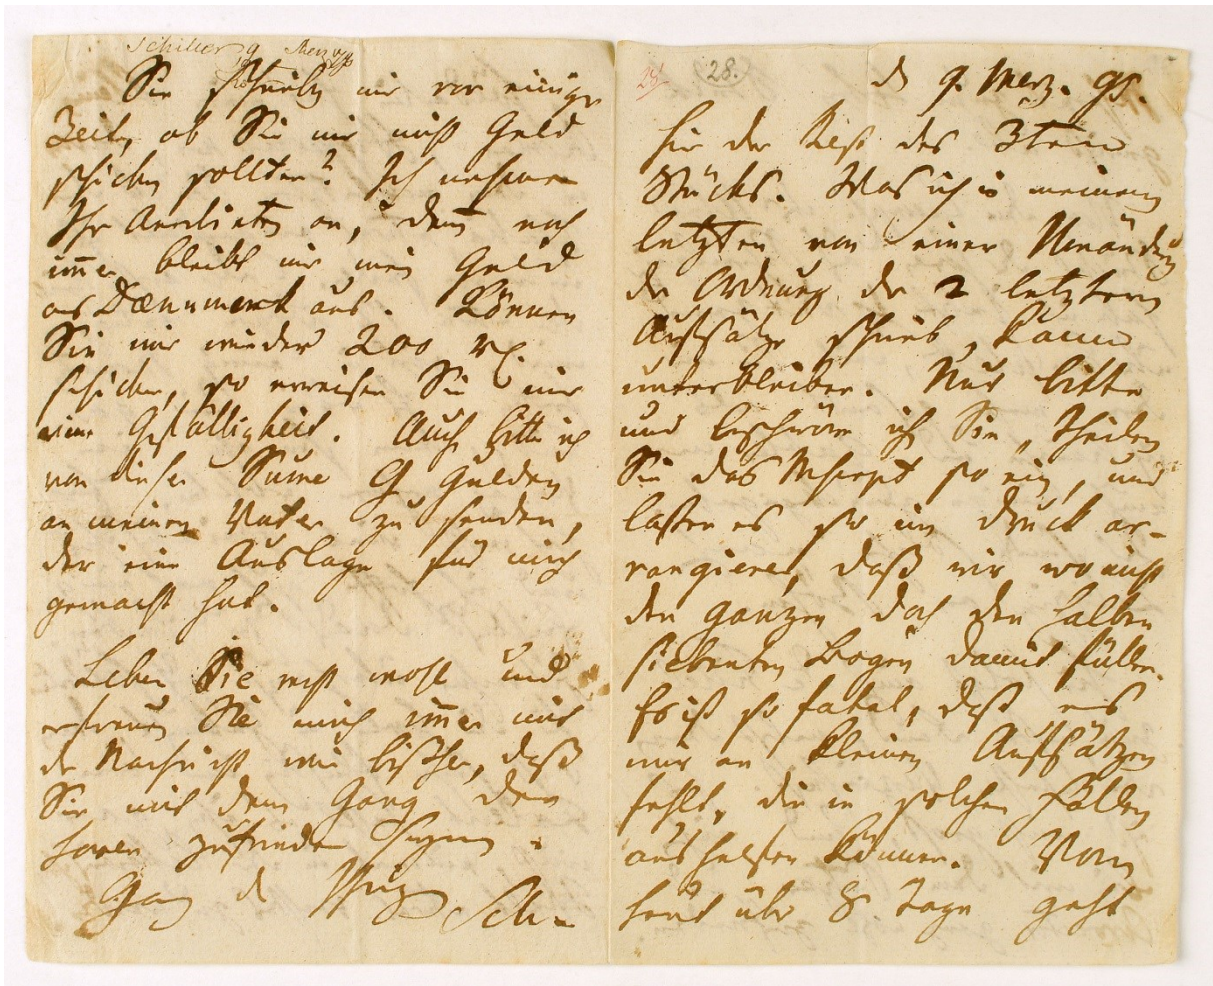 Schiller 9 Merz 95
Sie schrieben mir vor einiger
Zeit, ob Sie mir nicht Geld
schicken sollten? Ich nehme
Ihr Anerbieten an, denn noch
immer bleibt mir mein Geld
aus Dænnemark aus. Können
Sie mir wieder 200 rl.
schicken, so erweisen Sie mir
eine Gefälligkeit. Auch bitte ich
von dieser Sume 9 Gulden
an meinen Vater zu senden,
der eine Auslage für mich
gemacht hat.
Leben Sie recht wohl und
erfreuen Sie mich immer mit
der Nachricht wie bißher, daß
Sie mit dem Gang der
Horen zufrieden seyen.
Ganz der Ihrige Sch.
28.
d 9. Merz. 95.
Hier der Rest des 3ten
Stücks. Was ich in meinem
letzten von einer Veränderg
der Ordnung der 2 letztern
Aufsätze schrieb, kann
unterbleiben. Nur bitte
und beschwöre ich Sie, theilen
Sie das Mscrpt so ein, und
lassen es so im Druck ar-
rangieren, daß wir wo nicht
den ganzen doch den halben
siebenten Bogen damit füllen.
Es ist so fatal, daß es
mir an kleinen Aufsätzen
fehlt, die in solchen Fällen
aushelfen können. Von
heut über 8 Tage geht